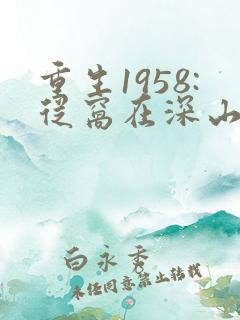 重生1958:
从窝在深山
白永秀
未经同意禁止转载